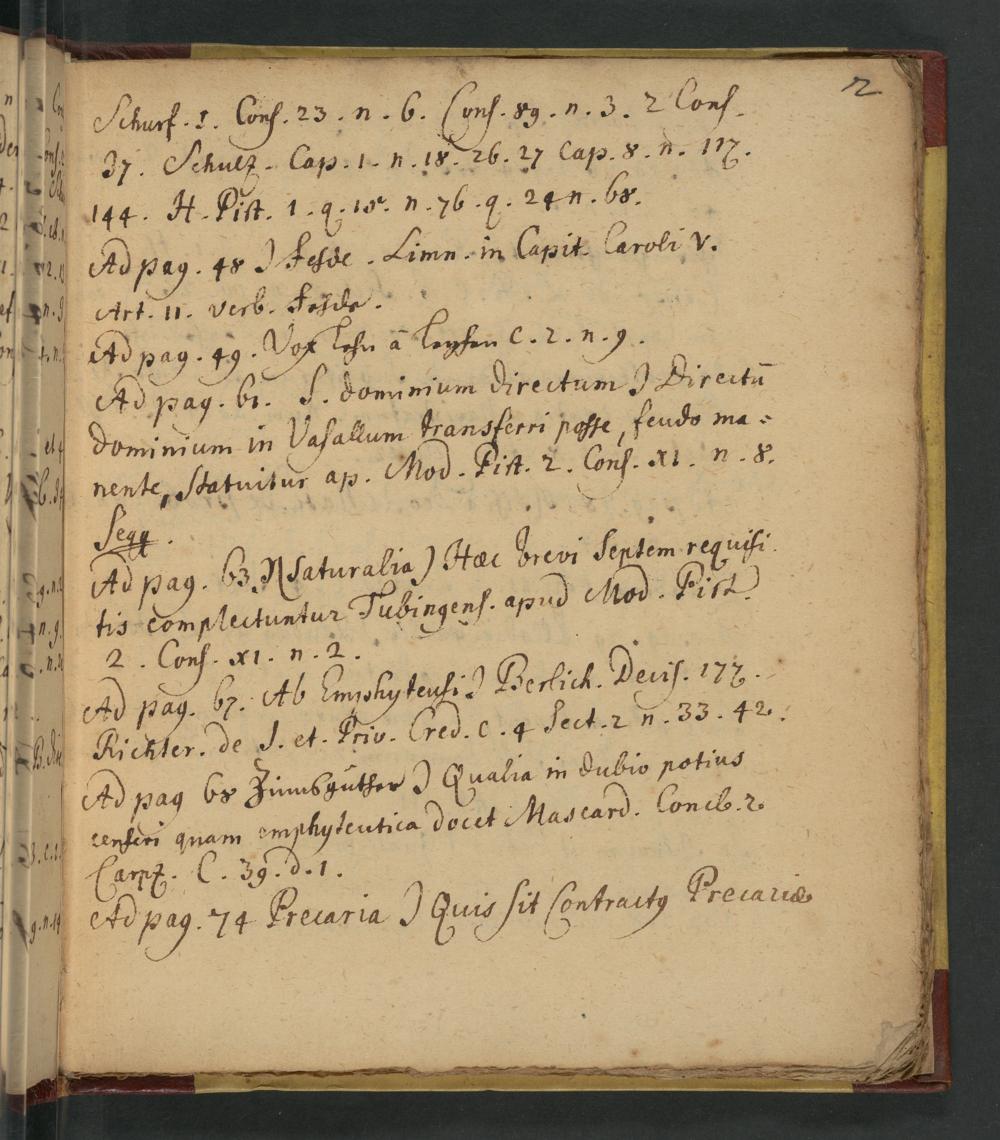 2
Schurf. 1. Cons. 23. n. 6. Cons. 89. n. 3. 2 Cons.
37. Schulz. Cap. 1. n. 18. 26. 27 Cap. 8. n. 117.
144. H. Pist. 1. q. 18. n. 76. q. 24 n. 68.
Ad pag. 48 ) Fehde. Limn. in Capit. Caroli V.
Art. 11. verb. Fehde.
Ad pag. 49. Vox Lehn â Leyhen C. 2. n. 9.
Ad pag. 61. S. dominium directum ) Directū
dominium in Vasallum transferri posse, feudo ma=
nente, statuitur ap. Mod. Pist. 2. Cons. XI. n. 8.
seqq.
Ad pag. 63. Naturalia ) Hæc brevi septem requisi
tis complectuntur Tubingens. apud Mod. Pist.
2. Cons. XI. n. 2.
Ad pag. 67. Ab Emphyteusi ) Berlich. Decis. 177.
Richter. de J. et. Priv. Cred. C. 4 Sect. 2 n. 33. 42.
Ad pag 68 Zinnßgüther ) Qualia in dubio potius
censeri quam emphyteutica docet Mascard. Concl. 2.
Carpz. C. 39. d. 1.
Ad pag. 74 Precaria ) Quis sit Contractus Precariæ